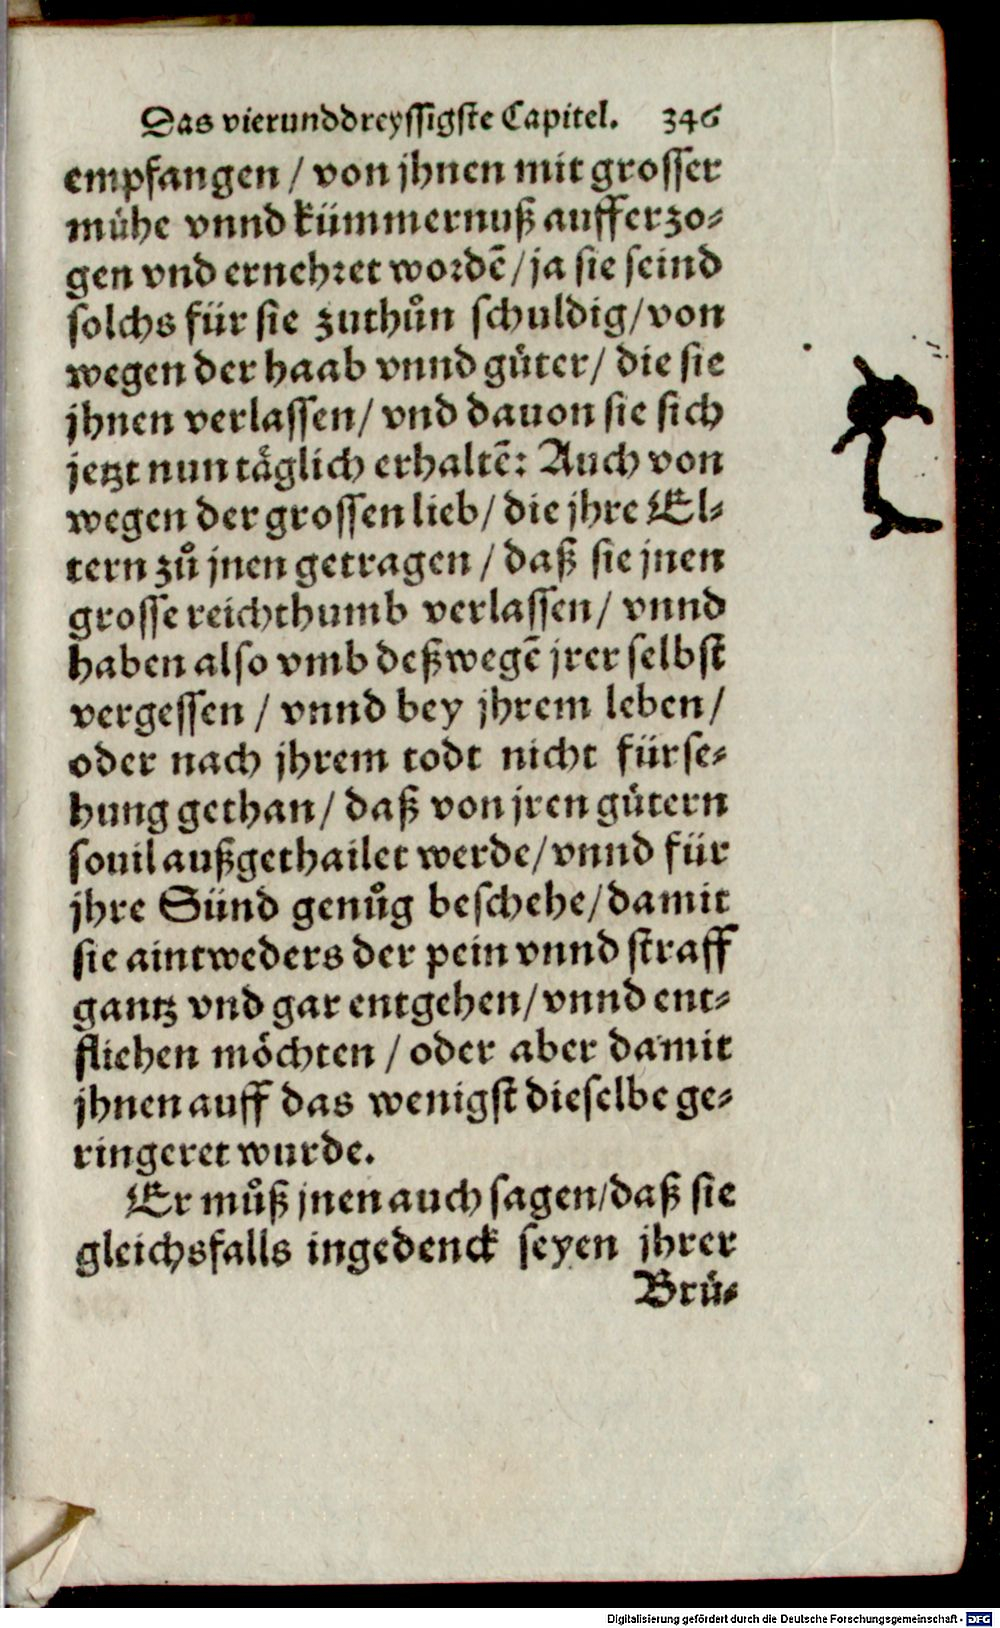 Das vierunddreyssigste Capitel. 346
empfangen / von jhnen mit grosser
mühe vnnd kümmernuß aufferzo-
gen vnd ernehret wordē / ja sie seind
solchs für sie zuthůn schuldig / von
wegen der haab vnnd güter / die sie
jhnen verlassen / vnd dauon sie sich
jetzt nun täglich erhaltē: Auch von
wegen der grossen lieb / die jhre El-
tern zů jnen getragen / daß sie jnen
grosse reichthumb verlassen / vnnd
haben also vmb deßwegē jrer selbst
vergessen / vnnd bey jhrem leben /
oder nach jhrem todt nicht fürse-
hung gethan / daß von jren gütern
souil außgethailet werde / vnnd für
jhre Sünd genůg beschehe / damit
sie aintweders der pein vnnd straff
gantz vnd gar entgehen / vnnd ent-
fliehen möchten / oder aber damit
jhnen auff das wenigst dieselbe ge-
ringeret wurde.
Er můß jnen auch sagen / daß sie
gleichsfalls ingedenck seyen jhrer
Brü-
Digitalisierung gefördert durch die Deutsche Forschungsgemeinschaft - DFG